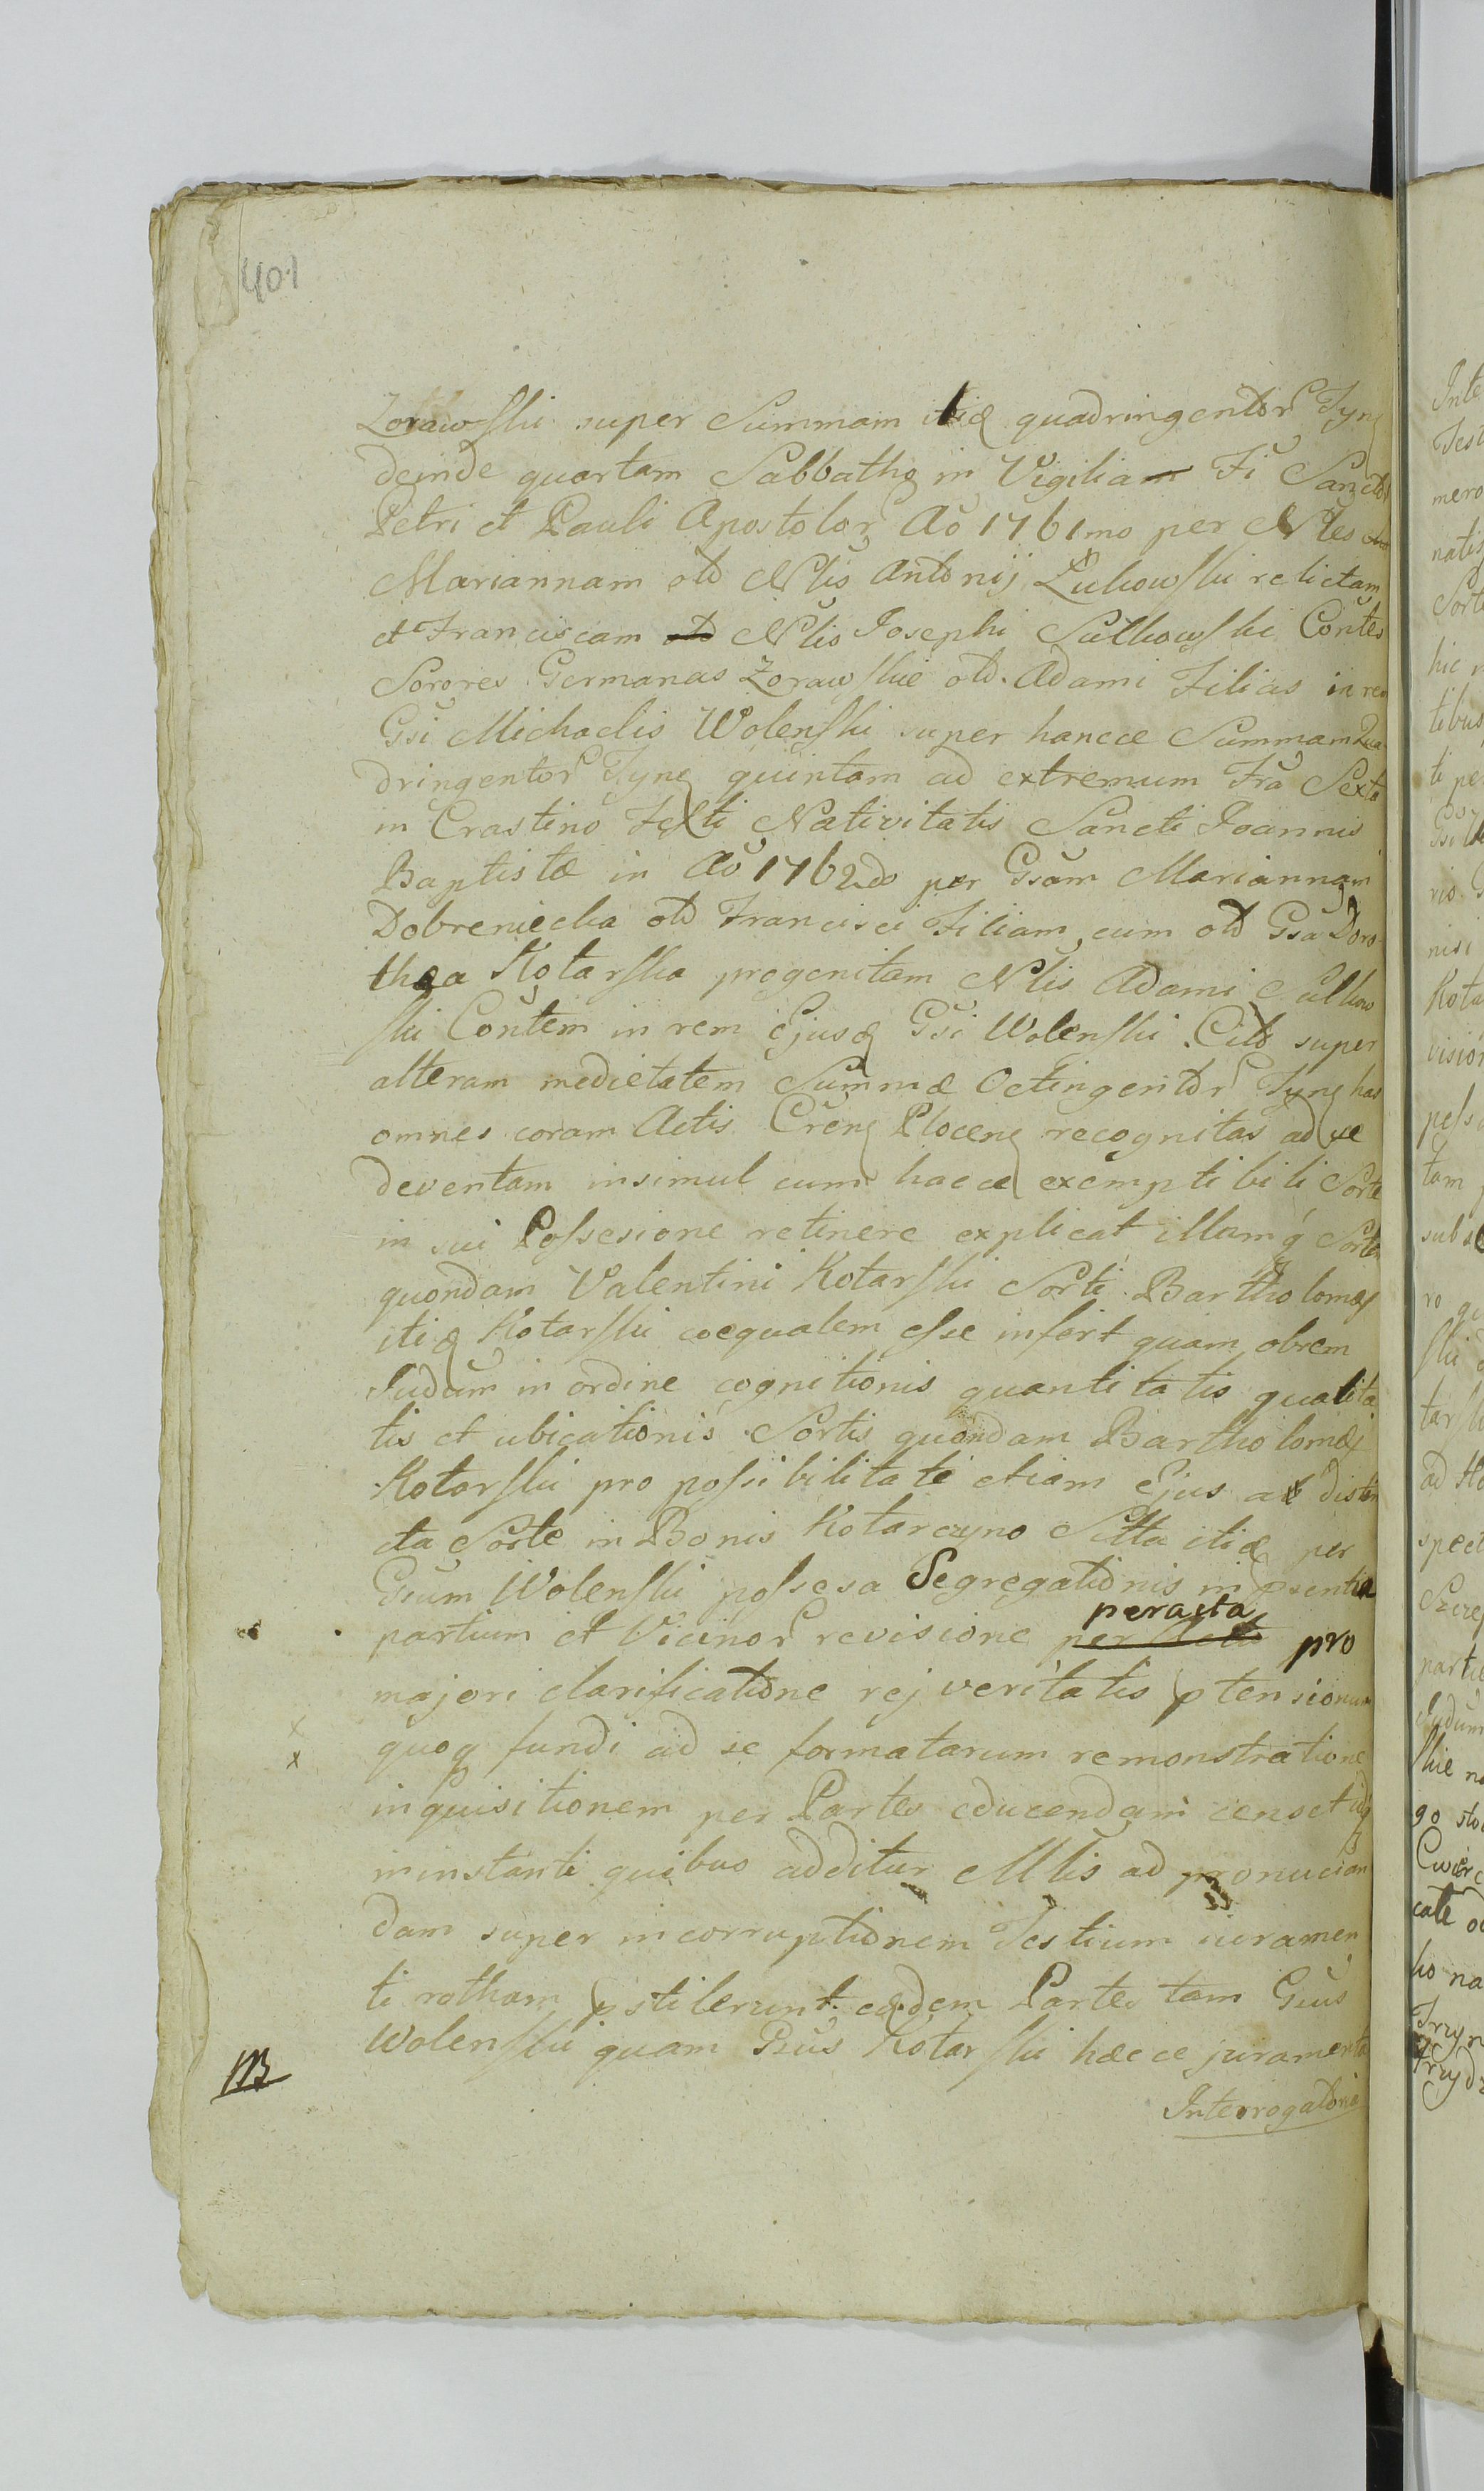 401
Zorawski super Summam itidē quadringentor Tynf
deinde quartam Sabbatho in Vigilia Fti Sanctor
Petri et Pauli Apostolor Aõ 1761mo per Nbles
Mariannam olĩ Nblis Antonij Lukowski relictam
et Franciscam Nblis Josephi Sulkowski Contes
Sorores Germanas Zorawskie olĩ Adami Filias in rem
Gsi Michaelis Wolenski super hancce Summam Qua
dringentor Tynf quintam ad extremum Fra Sexta
in Crastino Festi Nativitatis Sancti Joannis
Baptistæ in Aõ 1762do per Gsam Mariannam
Dobreniecka olĩ Francisci Filiam, cum olĩ Gsa Doro
thea Kotarska progenitam Nblis Adami Sulkow
ski Contem in rem Ejusd Gsi Wolenski Citõ super
alteram medietatem Summæ Octingentor Tynf has
omnes coram Actis Crens Plocens recognitas ad se
deventam insimul cum haece exemptibili Sorte
in sui Possesione retinere explicat illamq́ Sortem
quondam Valentini Kotarski Sorti Bartholomæj
itid Kotarski coequalem esse infert quam obrem
Judium in ordine cognitionis quantitatis qualita
tis et ubicationis Sortis quondam Bartholomæj
Kotarski pro possibilitate etiam Ejus a distin
cta Sorte in Bonis Kotarczyno Sitta itid per
Gsum Wolenski possesa Segregationis in psentia
peracta
partium et Vicinor revisione pro
majori clarificatione rej veritatis ptensionum
quoq fundi ad se formatarum remonstratione
inquisitionem per Partes educendam censet idq
in instanti quibus additur Mlis ad pronucian
dam super incorruptionem Testium iuramen
ti rotham pstilerunt eædem Partes tam Gsus
Wolenski quam Psus Kotarski hæcce juramenta
NB
Interrogatoria